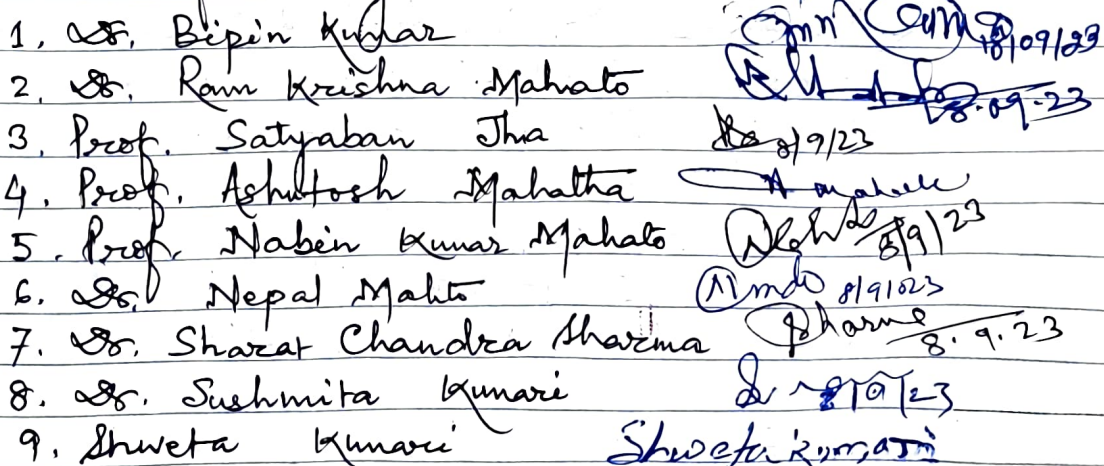 1. Dr. Bipin Kumar 18/09/23
2. Dr. Ram Krishna Mahato 8.09.23
3. Prof. Satyaban Jha 8/9/23
4. Prof. Ashutosh Mahatha
5. Prof. Nabin Kumar Mahato 8/9/23
6. Dr. Nepal Mahto 8/9/023
7. Dr. Sharat Chandra Sharma Sharma 8.9.23
8. Dr. Sushmita Kumari 8/9/23
9. Shweta Kumari Shweta kumari